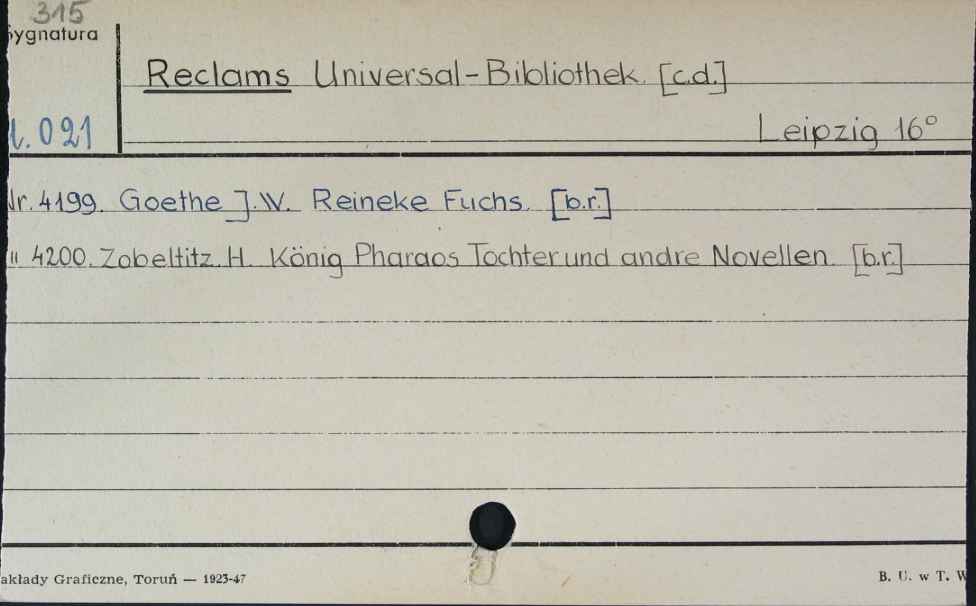 315
Sygnatura
Reclams Universal-Bibliothek. [c.d.]
l. 021
Leipzig 16°
Nr. 4199. Goethe J. W. Reineke Fuchs. [b.r.]
" 4200. Zobeltitz H. König Pharaos Tochter und andre Novellen. [b.r.]
akłady Graficzne, Toruń — 1923-47
B. U. w T. W